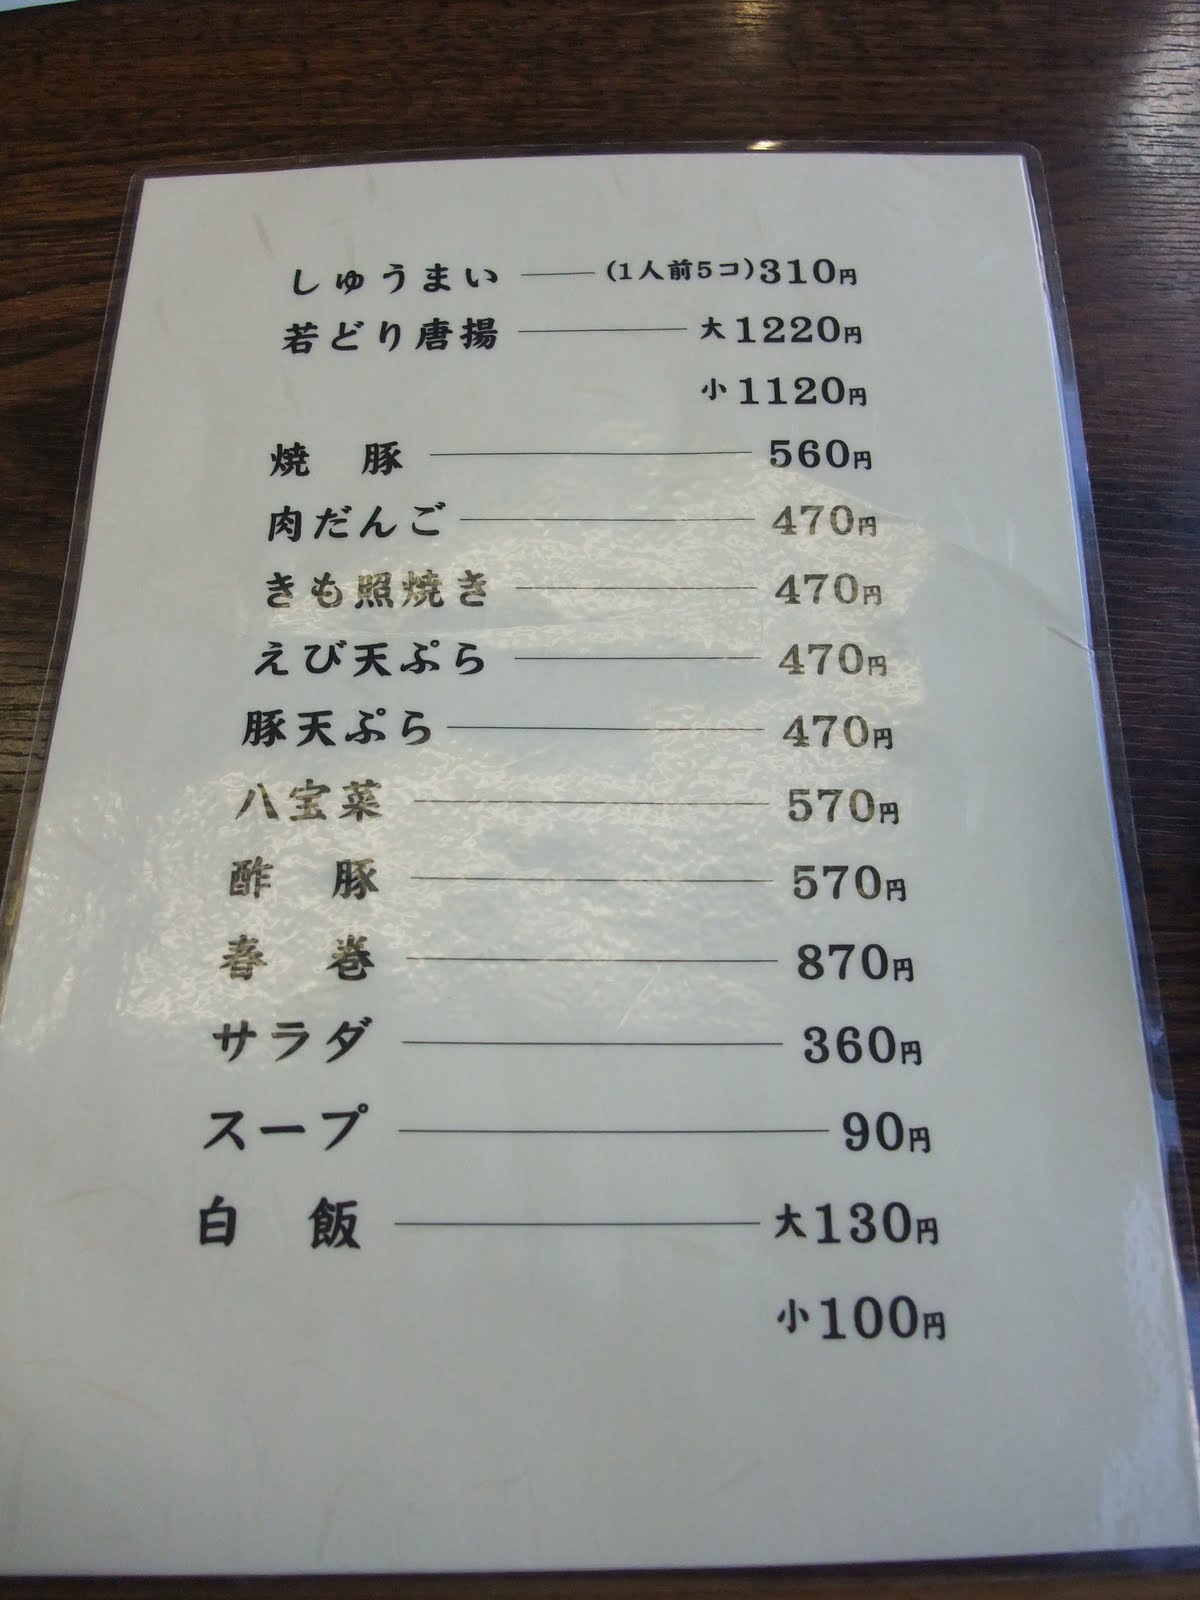 しゅうまい ――(1人前5コ)310円
若どり唐揚 ―――― 大1220円
小1120円
焼 豚 ―――― 560円
肉だんご ―――― 470円
きも照焼き ―――― 470円
えび天ぷら ―――― 470円
豚天ぷら ―――― 470円
八宝菜 ―――― 570円
酢 豚 ―――― 570円
春 巻 ―――― 870円
サラダ ―――― 360円
スープ ―――― 90円
白 飯 ―――― 大130円
小100円